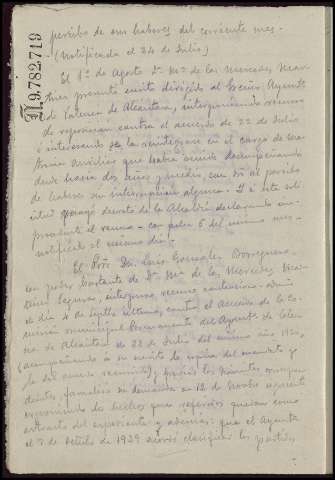 N.9.782.719
percibo de sus haberes del corriente mes.-
(Notificada el 24 de Julio)
El 1º de Agosto Dª Mª de las Mercedes
presentó escrito dirigido al Excmo. Ayunt.
de Valencia de Alcántara, interponiendo recurso
de reposición contra el acuerdo de 22 de Julio
e interesando se la reintegrase en el cargo de
que había venido desempeñando
desde hacía dos años y medio, con dº al percibo
de haberes sin interrupción alguna. Y a esta soli
citud recayó decreto de la Alcaldía declarando im
procedente el recurso - con fecha 5 del mismo mes -
notificado el mismo día.-
El Prdor. Dn. Luis González Borreguero
con poder bastante de Dª Mª de las Mercedes
interpuso recurso contencioso-admi
el día 4 de Septbre. último, contra el Acuerdo de la Co
misión municipal Permanente del Ayuntº de Valen
cia de Alcántara de 22 de Julio del mismo año
(acompañando a su escrito la copia del mandato y
la del acuerdo recurrido), y previos los trámites correspon
dientes, formalizó su demanda en 12 de Novbre siguiente
exponiendo los hechos que referidos quedan como
extracto del expediente y además: que el Ayuntº
el 7 de Octubre de 1929 acordó clasificar los partidos